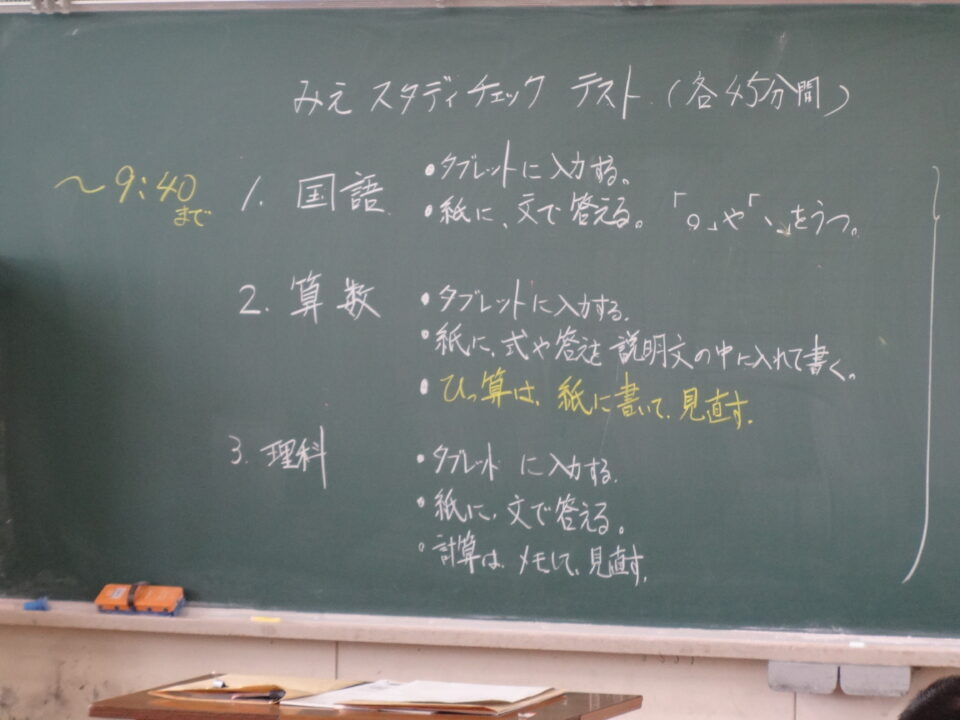 みえスタディチェック テスト.(各45分間)
〜9:40まで
1. 国語.
・タブレットに入力する。
・紙に、文で答える。「。」や「、」をうつ。
2. 算数
・タブレットに入力する.
・紙に、式や答えを説明文の中に入れて書く。
・ひっ算は、紙に書いて、見直す.
3. 理科
・タブレットに入力する.
・紙に、文で答える。
・計算は、メモして、見直す.